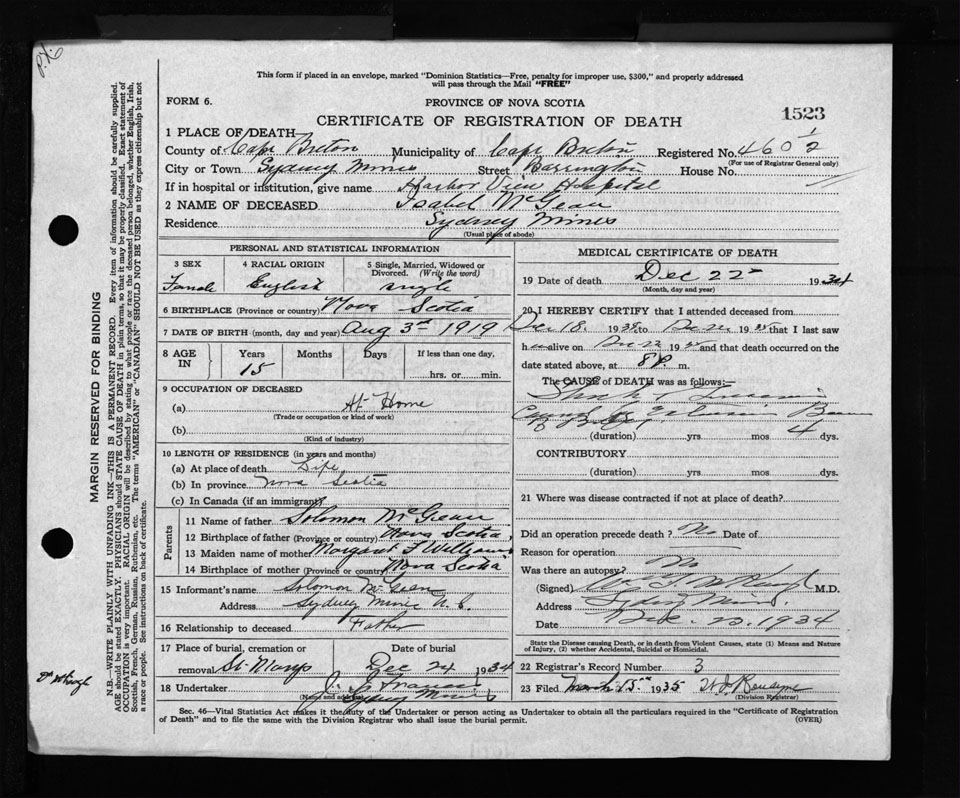 This form if placed in an envelope, marked "Dominion Statistics—Free, penalty for improper use, $300," and properly addressed
will pass through the Mail "FREE"
FORM 6.
PROVINCE OF NOVA SCOTIA
1523
CERTIFICATE OF REGISTRATION OF DEATH
1 PLACE OF DEATH
County of Cape Breton Municipality of Cape Breton Registered No. 460 1/2
(For use of Registrar General only)
City or Town Sydney Mines Street Barrington House No.
If in hospital or institution, give name Harbor View Hospital
2 NAME OF DECEASED Isabel McGean
Residence Sydney Mines
(Usual place of abode)
PERSONAL AND STATISTICAL INFORMATION
3 SEX
4 RACIAL ORIGIN
5 Single, Married, Widowed or
Divorced. (Write the word)
Female English single
6 BIRTHPLACE (Province or country) Nova Scotia
7 DATE OF BIRTH (month, day and year) Aug 3rd 1919
8 AGE
IN
Years
Months
Days
If less than one day,
15
hrs. or min.
9 OCCUPATION OF DECEASED
(a) At Home
(Trade or occupation or kind of work)
(b)
(Kind of industry)
10 LENGTH OF RESIDENCE (in years and months)
(a) At place of death Life
(b) In province Nova Scotia
(c) In Canada (if an immigrant)
Parents
11 Name of father Solomon McGean
12 Birthplace of father (Province or country) Nova Scotia
13 Maiden name of mother Margaret F Williams
14 Birthplace of mother (Province or country) Nova Scotia
15 Informant's name Solomon McGean
Address Sydney Mines N.S.
16 Relationship to deceased Father
17 Place of burial, cremation or
removal St. Marys
Date of burial
Dec 24 1934
18 Undertaker
(Name and address)
Sydney Mines
MEDICAL CERTIFICATE OF DEATH
19 Date of death Dec 22 1934
(Month, day and year)
20 I HEREBY CERTIFY that I attended deceased from
Dec 18. 1934 to 19 that I last saw
h alive on 19 and that death occurred on the
date stated above, at 8P m.
The CAUSE of DEATH was as follows:—
Shock
(duration) yrs mos 4 dys.
CONTRIBUTORY
(duration) yrs mos dys.
21 Where was disease contracted if not at place of death?
Did an operation precede death? No Date of
Reason for operation
Was there an autopsy? No
(Signed) M.D.
Address Sydney Mines.
Date Dec. 20. 1934
State the Disease causing Death, or in death from Violent Causes, state (1) Means and Nature
of Injury, (2) whether Accidental, Suicidal or Homicidal.
22 Registrar's Record Number 3
23 Filed March 15. 1935
(Division Registrar)
Sec. 46—Vital Statistics Act makes it the duty of the Undertaker or person acting as Undertaker to obtain all the particulars required in the "Certificate of Registration
of Death" and to file the same with the Division Registrar who shall issue the burial permit.
(OVER)
MARGIN RESERVED FOR BINDING
N.B.—WRITE PLAINLY WITH UNFADING INK—THIS IS A PERMANENT RECORD. Every item of information should be carefully supplied.
AGE should be stated EXACTLY. PHYSICIANS should STATE CAUSE OF DEATH in plain terms, so that it may be properly classified. Exact statement of
OCCUPATION is very important. RACIAL ORIGIN will be described by stating to what people or race the deceased person belonged, whether English, Irish,
Scottish, French, German, Russian, Ruthenian, etc. The terms "AMERICAN" or "CANADIAN" SHOULD NOT BE USED as they express citizenship but not
a race or people. See instructions on back of certificate.